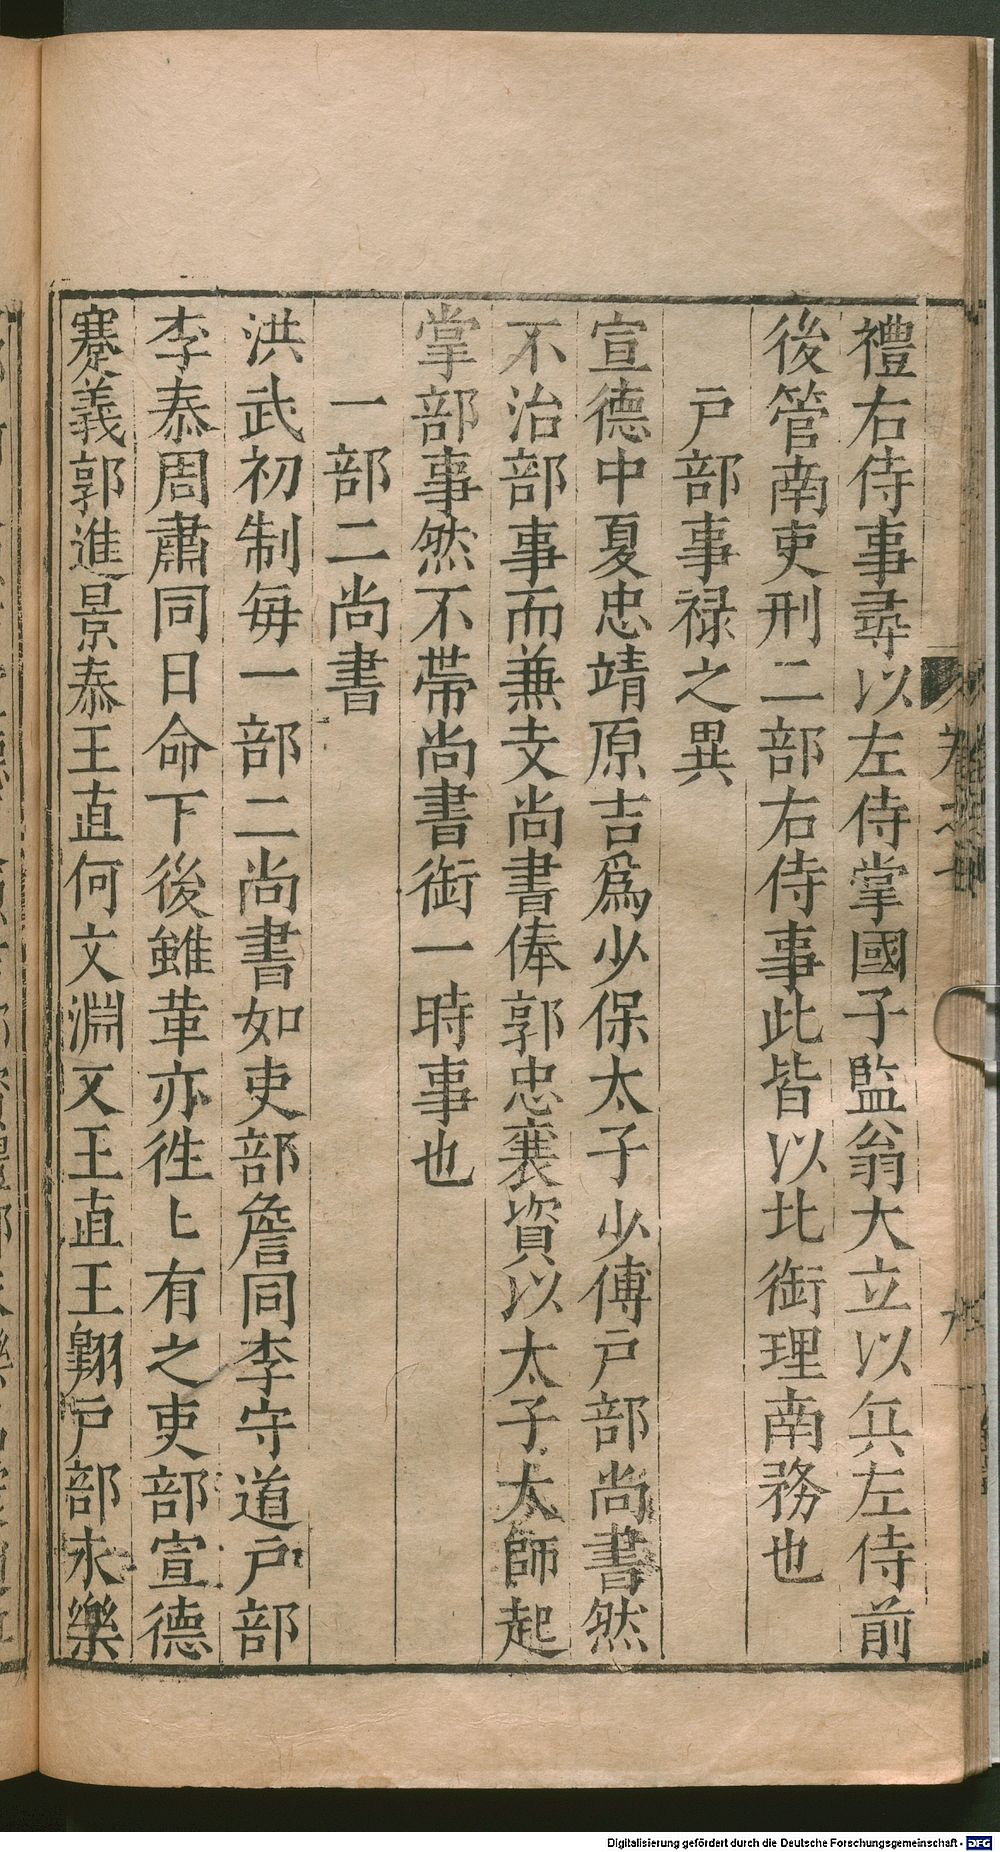 禮右侍事尋以左侍掌國子監翁大立以兵左侍前
後管南吏刑二部右侍事此皆以北銜理南務也
戶部事祿之異
宣德中夏忠靖原吉爲少保太子少傅戶部尚書然
不治部事而兼支尚書俸郭忠襄資以太子太師起
掌部事然不帶尚書銜一時事也
一部二尚書
洪武初制每一部二尚書如吏部詹同李守道戶部
李泰周肅同日命下後雖革亦徃〻有之吏部宣德
蹇義郭進景泰王直何文淵又王直王翱戶部永樂
Digitalisierung gefördert durch die Deutsche Forschungsgemeinschaft - DFG